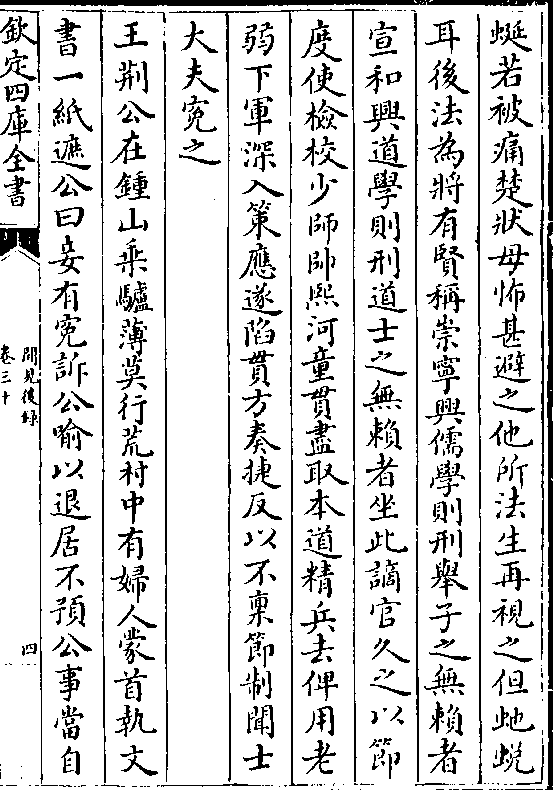 蜒若被痛楚狀母怖甚避之他所法生再視之但虵蛻
耳後法為將有賢稱崇寧興儒學則刑舉子之無賴者
宣和興道學則刑道士之無賴者坐此謫官久之以節
度使檢校少師帥熙河童貫盡取本道精兵去俾用老
弱下軍深入策應遂陷貫方奏捷反以不稟節制聞士
大夫寃之
王荆公在鍾山乘驢薄莫行荒村中有婦人蒙首執文
書一紙遮公曰妾有寃訴公喻以退居不預公事當自
欽定四庫全書
聞見後錄
卷三十
四